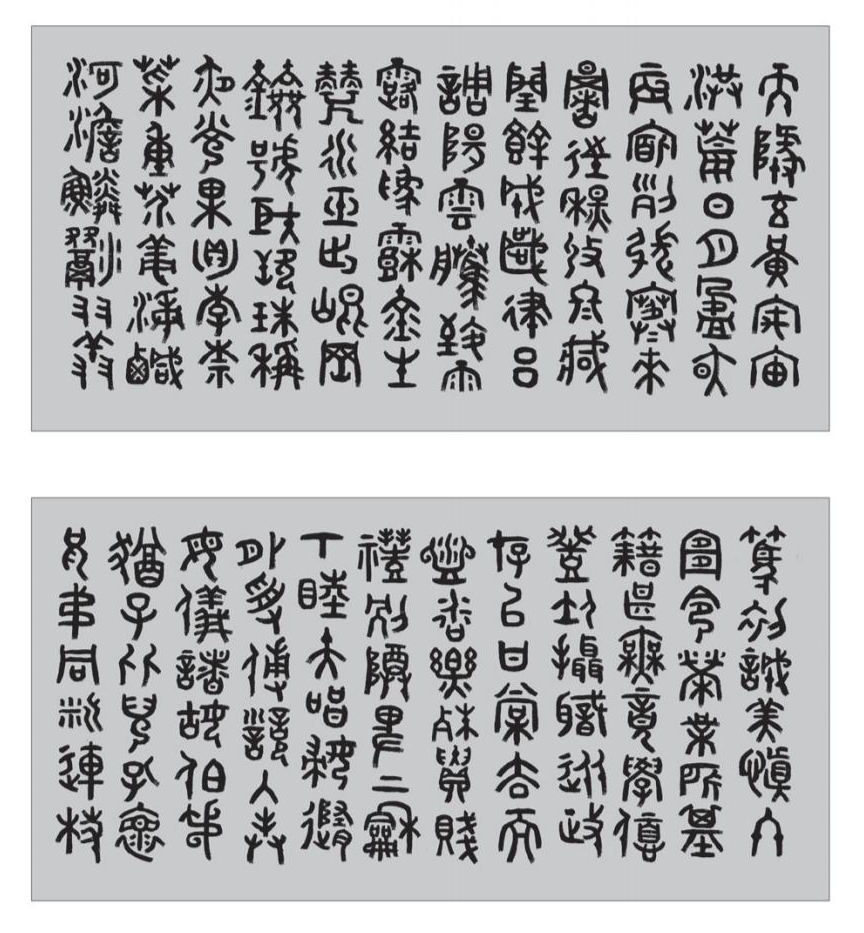 天地玄黃宇宙
洪荒日月盈昃
辰宿列張寒來
暑往秋收冬藏
閏餘成歲律呂
調陽雲騰致雨
露結為霜金生
麗水玉出崑岡
劍號巨闕珠稱
夜光果珍李柰
菜重芥薑海鹹
河淡鱗潛羽翔
篤初誠美慎終
宜令榮業所基
籍甚無竟學優
登仕攝職從政
存以甘棠去而
益詠樂殊貴賤
禮別尊卑上和
下睦夫唱婦隨
外受傅訓入奉
母儀諸姑伯叔
猶子比兒孔懷
兄弟同氣連枝